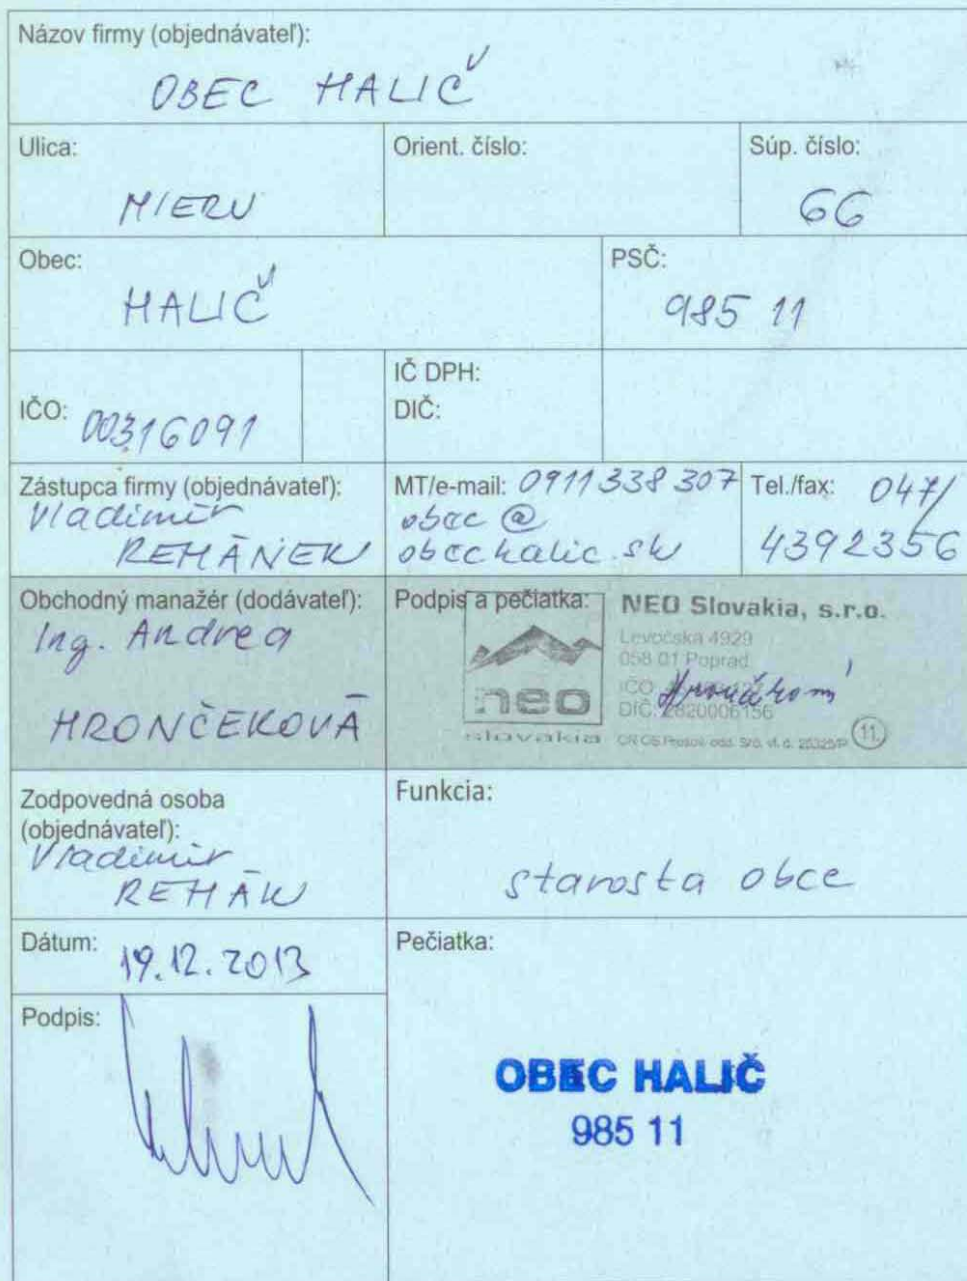 Názov firmy (objednávateľ):
OBEC HALIČ
Ulica:
MIERU
Orient. číslo:
Súp. číslo:
66
Obec:
HALIČ
PSČ:
985 11
IČO: 00316091
IČ DPH:
DIČ:
Zástupca firmy (objednávateľ):
Vladimír
REHÁNEK
MT/e-mail: 0911 338 307
obec @
obechalic.sk
Tel./fax: 047/
4392356
Obchodný manažér (dodávateľ):
Ing. Andrea
HRONČEKOVÁ
Podpis a pečiatka:
neo
slovakia
NEO Slovakia, s.r.o.
Levočská 4929
058 01 Poprad
IČO
DIČ: 2820006156
11.
Zodpovedná osoba
(objednávateľ):
Vladimír
REHÁK
Funkcia:
starosta obce
Dátum: 19.12.2013
Podpis:
Pečiatka:
OBEC HALIČ
985 11